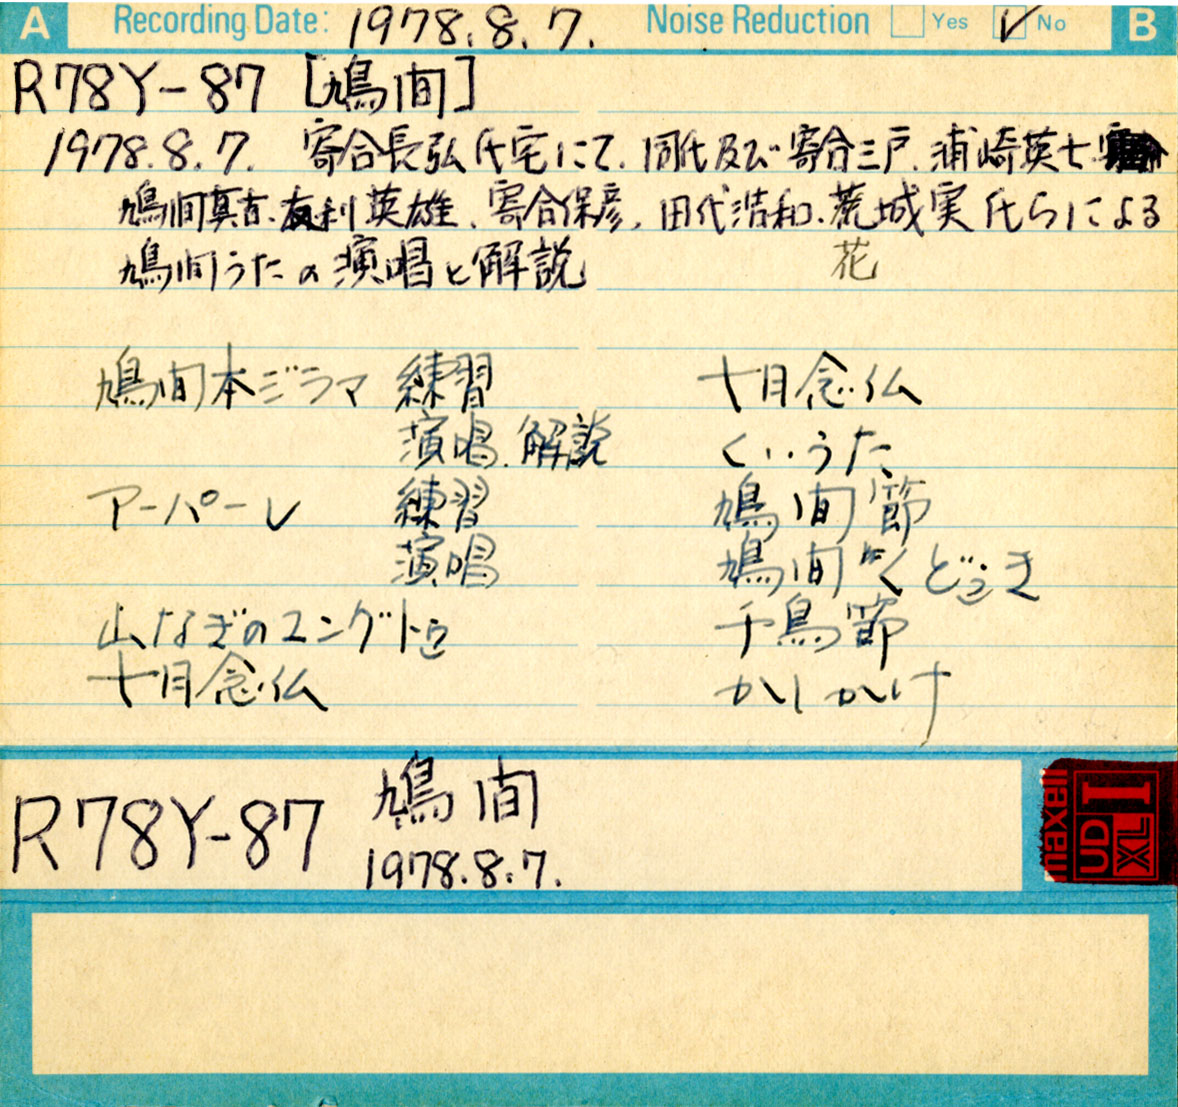 A Recording Date: 1978.8.7. Noise Reduction Yes ✓ No B
R78Y-87 [鳩間]
1978.8.7. 寄合長弘氏宅にて、同氏及び寄合三戸、浦崎英士、
鳩間真吉、友利英雄、寄合保彦、田代浩和、荒城実氏らによる
鳩間うたの演唱と解説
花
鳩間本ジラマ 練習
演唱、解説
アーパーレ 練習
演唱
山なぎのユングトゥ
七月念仏
七月念仏
くいうた
鳩間節
鳩間くどぅき
千鳥節
かしかけ
R78Y-87 鳩間
1978.8.7.
maxell
UD XL I